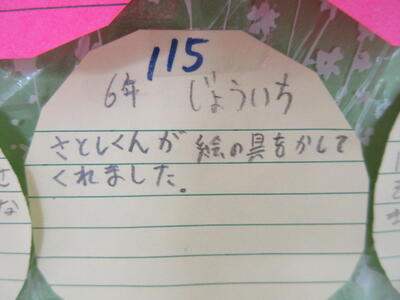 115
6年 じょういち
さとしくんが 絵の具をかして
くれました。